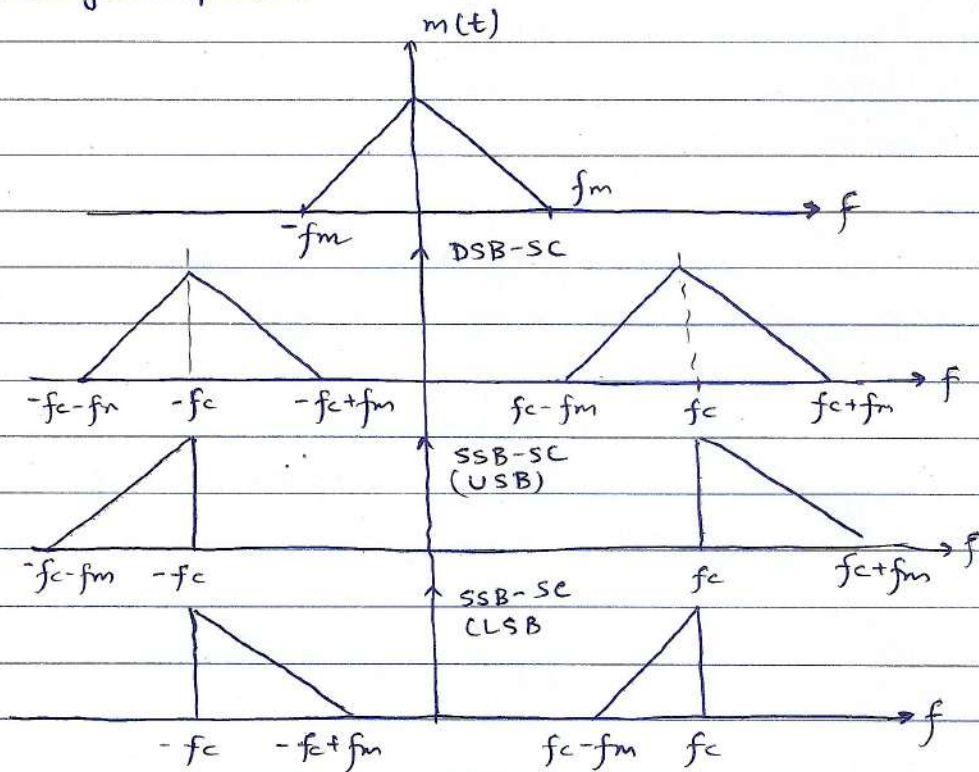 m(t)
fm
-fm
f
DSB-SC
-fc-fm -fc -fc+fm fc-fm fc fc+fm
f
SSB-SC
(USB)
-fc-fm -fc fc fc+fm
f
SSB-SC
(LSB
-fc -fc+fm fc-fm fc
f